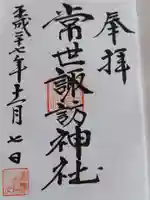 奉拝
常世諏訪神社
平成二十七年十二月七日